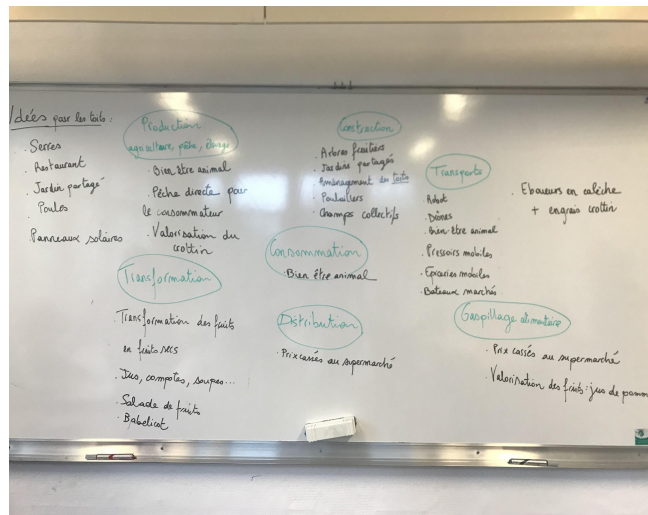 Idées pour les toits :
. Serres
. Restaurant
. Jardin partagé
. Poules
Panneaux solaires
Production
agriculture, pêche, élevage
. Bien être animal
. Pêche directe pour
le consommateur
. Valorisation du
crottin
Transformation
. Transformation des fruits
en fruits secs
. Jus, compotes, soupes...
. Salade de fruits
. Babelicot
Construction
. Arbres fruitiers
. Jardins partagés
. Aménagement des toits
. Poulaillers
. Champs collectifs
Consommation
. Bien être animal
Distribution
. Prix cassés au supermarché
Transports
. Robot
. Drônes
. Bien être animal
. Pressoirs mobiles
. Epiceries mobiles
. Bateaux marchés
. Eboueurs en calèche
+ engrais crottin
Gaspillage alimentaire
. Prix cassés au supermarché
. Valorisation des fruits : jus de pomm